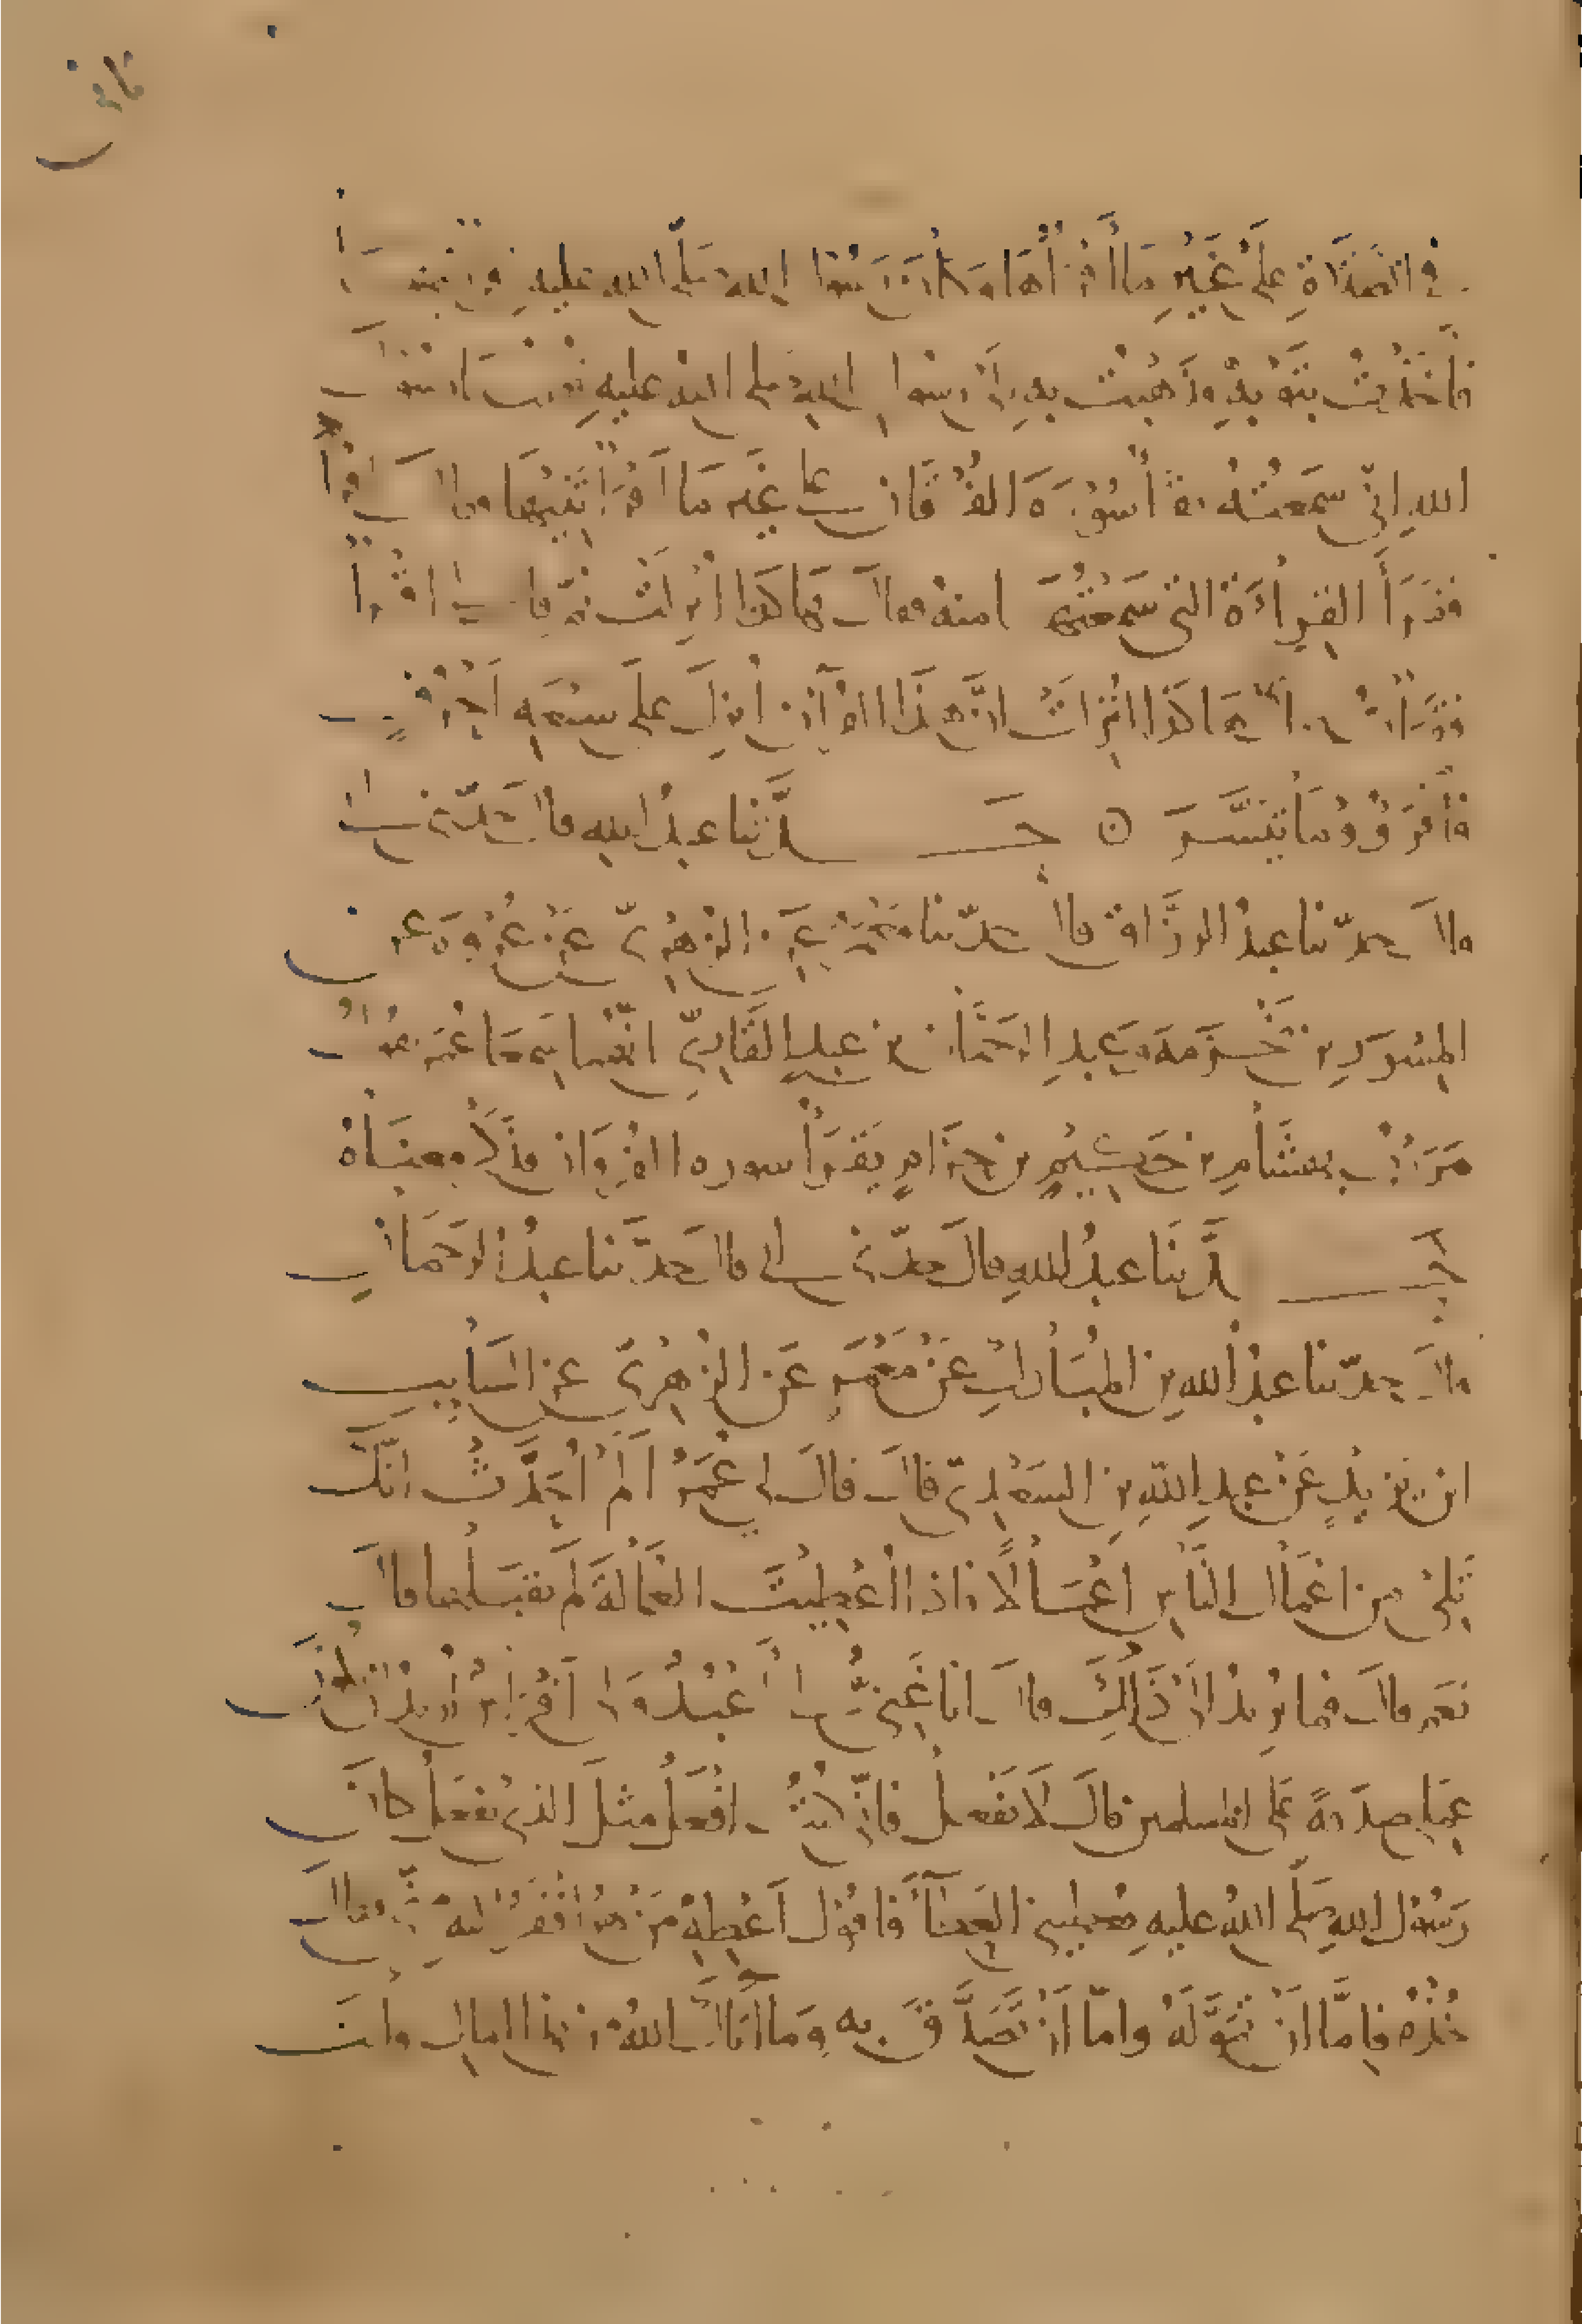 في الصلاة على غير ما أقرأها وكان رسول الله صلى الله عليه
فأخذت بثوبه وذهبت به إلى رسول الله صلى الله عليه فقلت يا رسول
الله اني سمعته يقرأ سورة الفرقان على غير ما اقرأتنيها وقال اقرأ
فقرأ القراءة التي سمعتها منه فقال هاكذا انزلت ثم قال لي اقرأ
فقرأت فقال هاكذا انزلت ان هذا القرآن انزل على سبعه احرف
فأقرؤوما تيسر ه حدثنا عبد الله قال حدثني ابي
قال حدثنا عبد الرزاق قال حدثنا معمر عن الزهري عن عروة عن
المسور بن مخرمة وعبد الرحمان بن عبد القاري انهما سمعا عمر يقول
مررت بهشام بن حكيم بن حزام يقرأ سوره الفرقان فذكر معناه
حدثنا عبد الله قال حدثني ابي قال حدثنا عبد الرحمان
قال حدثنا عبد الله بن المبارك عن معمر عن الزهري عن السايب
ابن يزيد عن عبد الله بن السعدي قال قال لي عمر ألم احدث انك
تلي من اعمال الناس اعمالا فاذا اعطيت العمالة لم تقبلها قال
نعم قال فما تريد الى ذالك قال انا غني لي اعبد ولي افراس اريد ان يكون
عملي صدقة على المسلمين قال لا تفعل فاني كنت افعل مثل الذي تفعل كان
رسول الله صلى الله عليه يعطيني العطاء فاقول اعطه من هو افقر اليه مني فقال
خذه فاما ان تموله واما ان تصدق به وما اتاك الله من هذا المال وانت